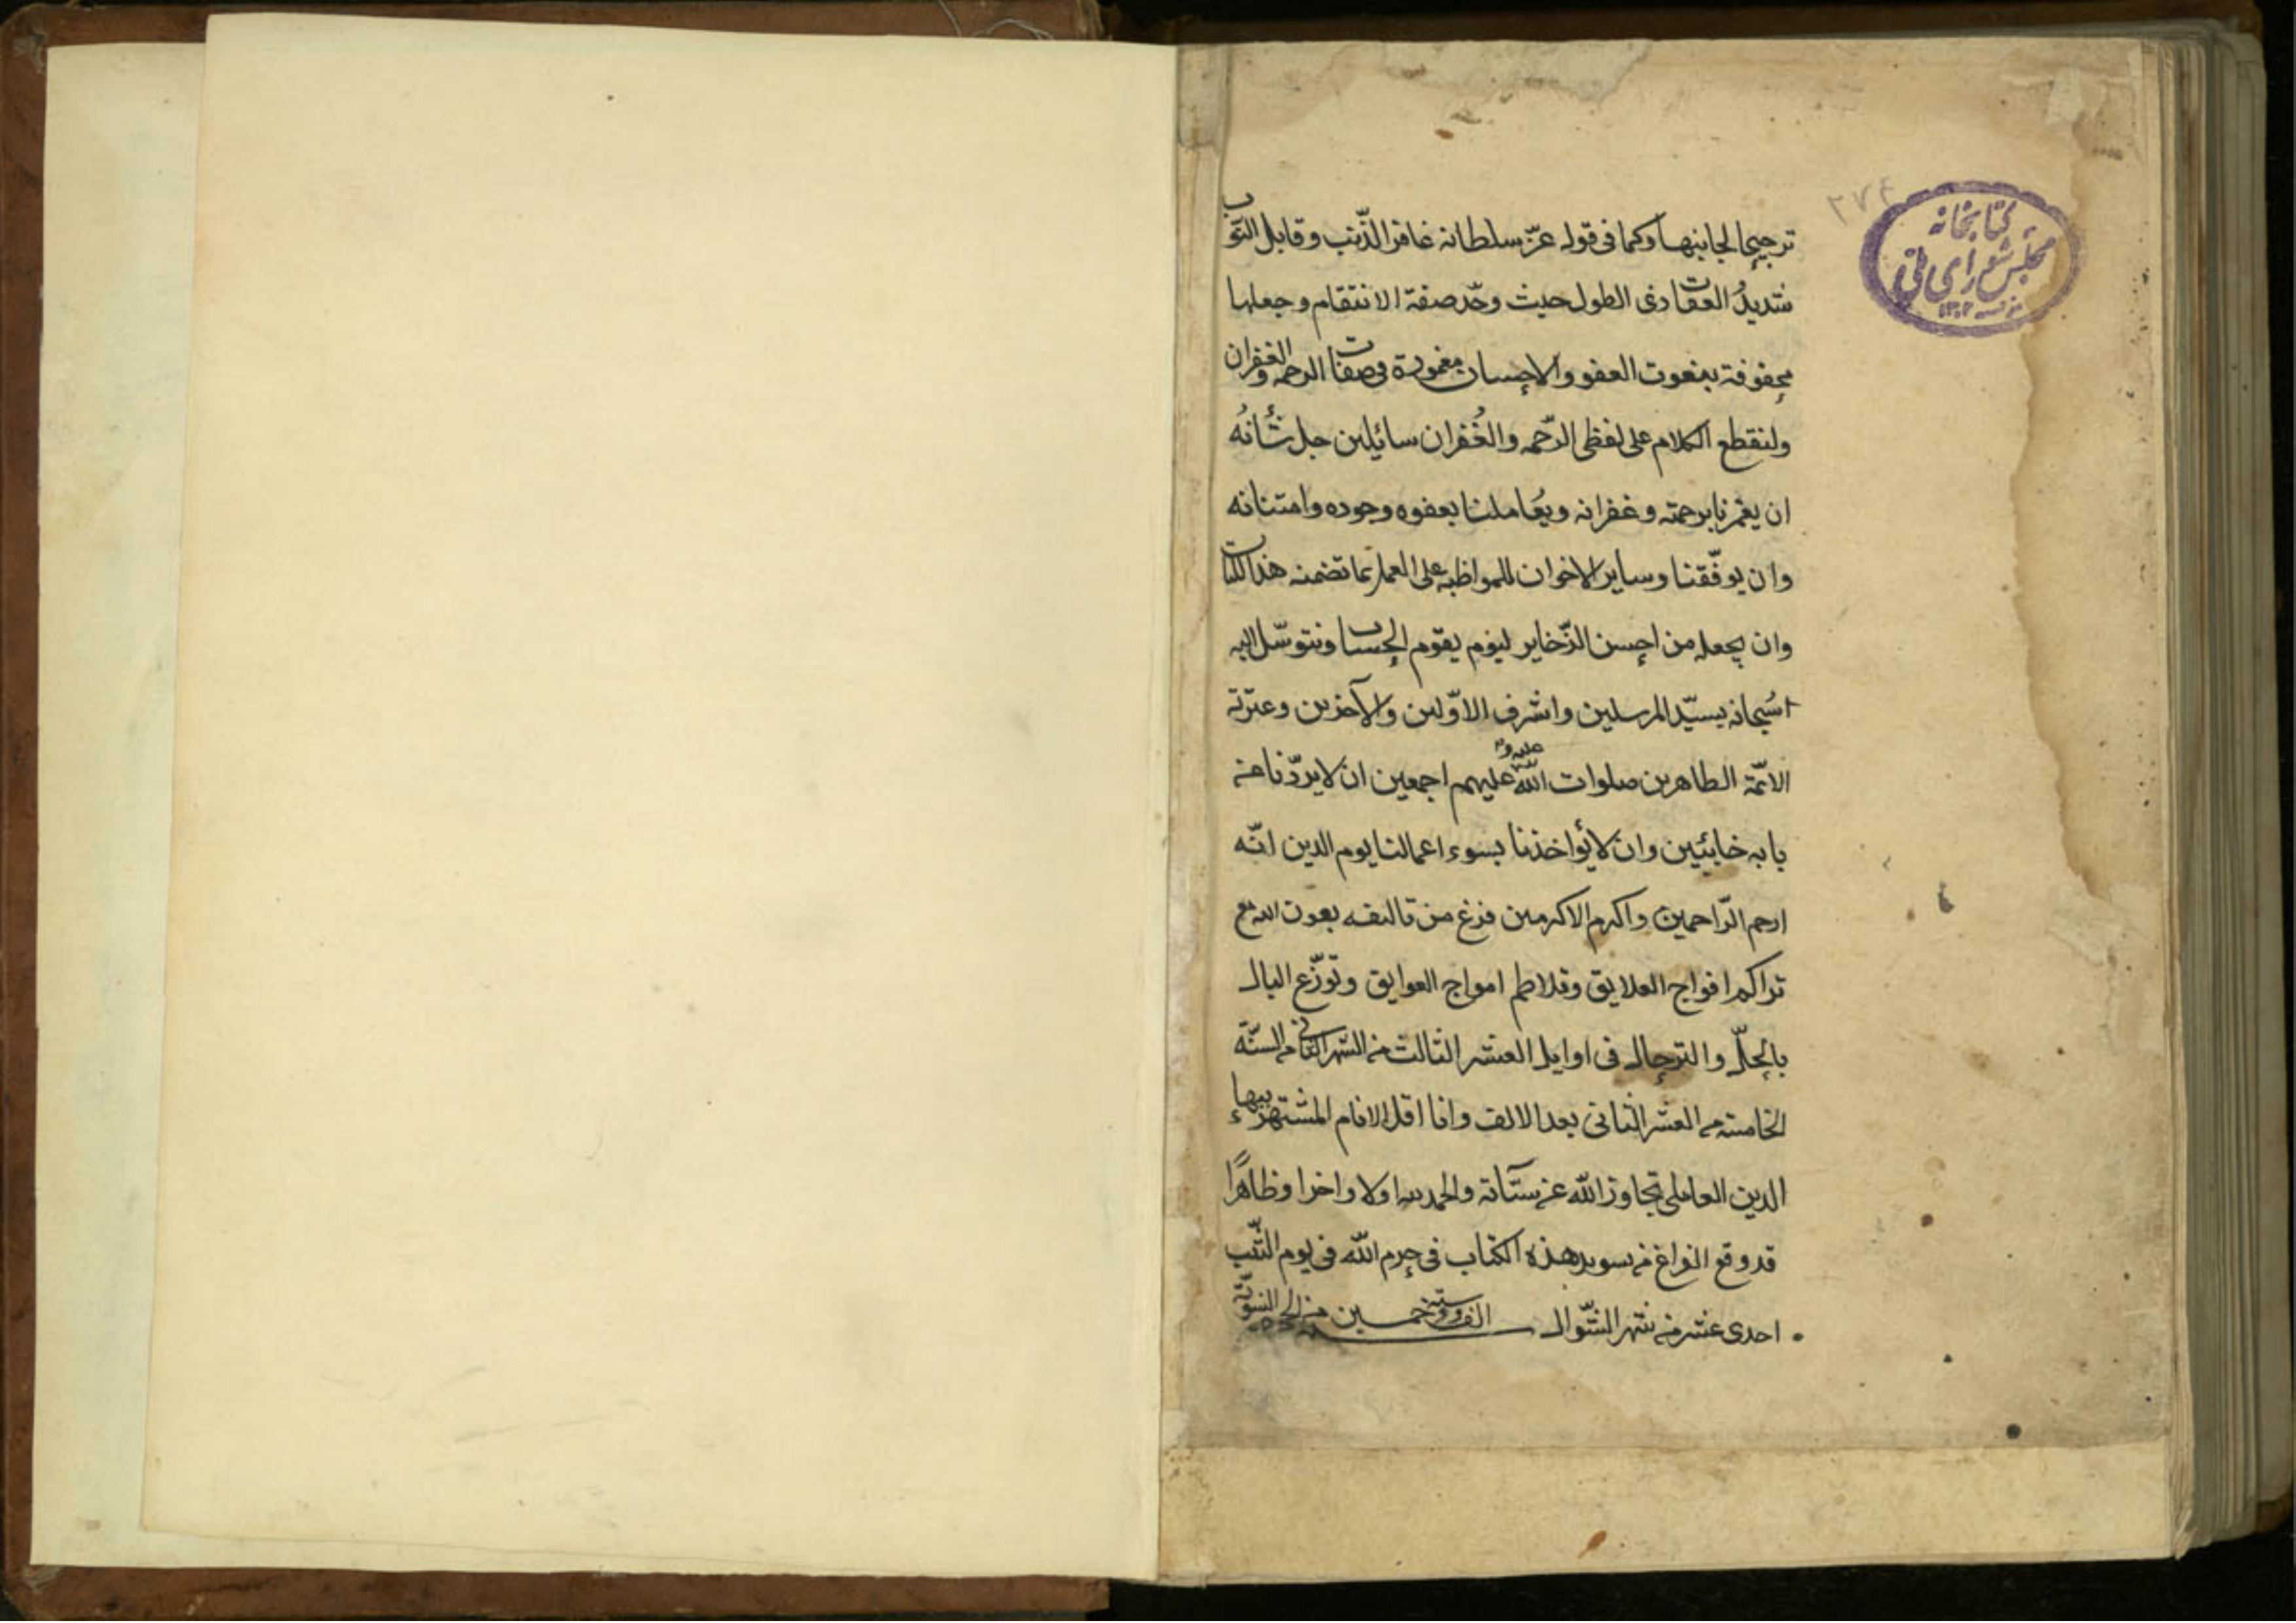 ترجيحا لجانبها وكما فى قوله عزّ سلطانه غافر الذّنب وقابل التوب
شديدُ العقاب ذى الطول حيث وحّد صفة الانتقام وجعلها
محفوفة بنعوت العفو والاحسان مغمورة فى صفات الرحمه والغفران
ولنقطع الكلام على لفظى الرّحمه والغُفران سائيلين جل شأنُه
ان يغمرنا برحمته وغفرانه ويُعاملنا بعفوه وجوده وامتنانه
وان يوفّقنا وساير الاخوان للمواظبه على العمل بما تضمنه هذا الكتاب
وان يجعله من احسن الذّخاير ليوم يقوم الحساب ونتوسّل اليه
سُبحانه بسيّد المرسلين واشرف الاوّلين والآخرين وعترته
الائمّة الطاهرين صلوات اللّه عليه و عليهم اجمعين ان لا يردّنا عن
بابه خائبين وان لا يُؤاخذنا بسوء اعمالنا يوم الدين انّه
ارحم الرّاحمين واكرم الاكرمين فرغ من تاليفه بعون الله مع
تراكم افواج العلايق وتلاطم امواج العوايق وتوزّع البال
بالحلّ والترحال فى اوايل العشر الثالث من الشهر الثانى من السنّة
الخامسة من العشر الثانى بعد الالف وانا اقل الانام المشتهر ببهاء
الدين العاملى تجاوز اللّه عن سيّآته والحمد لله اولا واخرا وظاهرًا
قد وقع الفراغ من تسويد هذه الكتاب فى حرم اللّه فى يوم
احدى عشر من شهر الشّوال الف وستة وخمسين من الهجرة النبويّة
كتابخانه
مجلس شورای ملی
۲۷۴